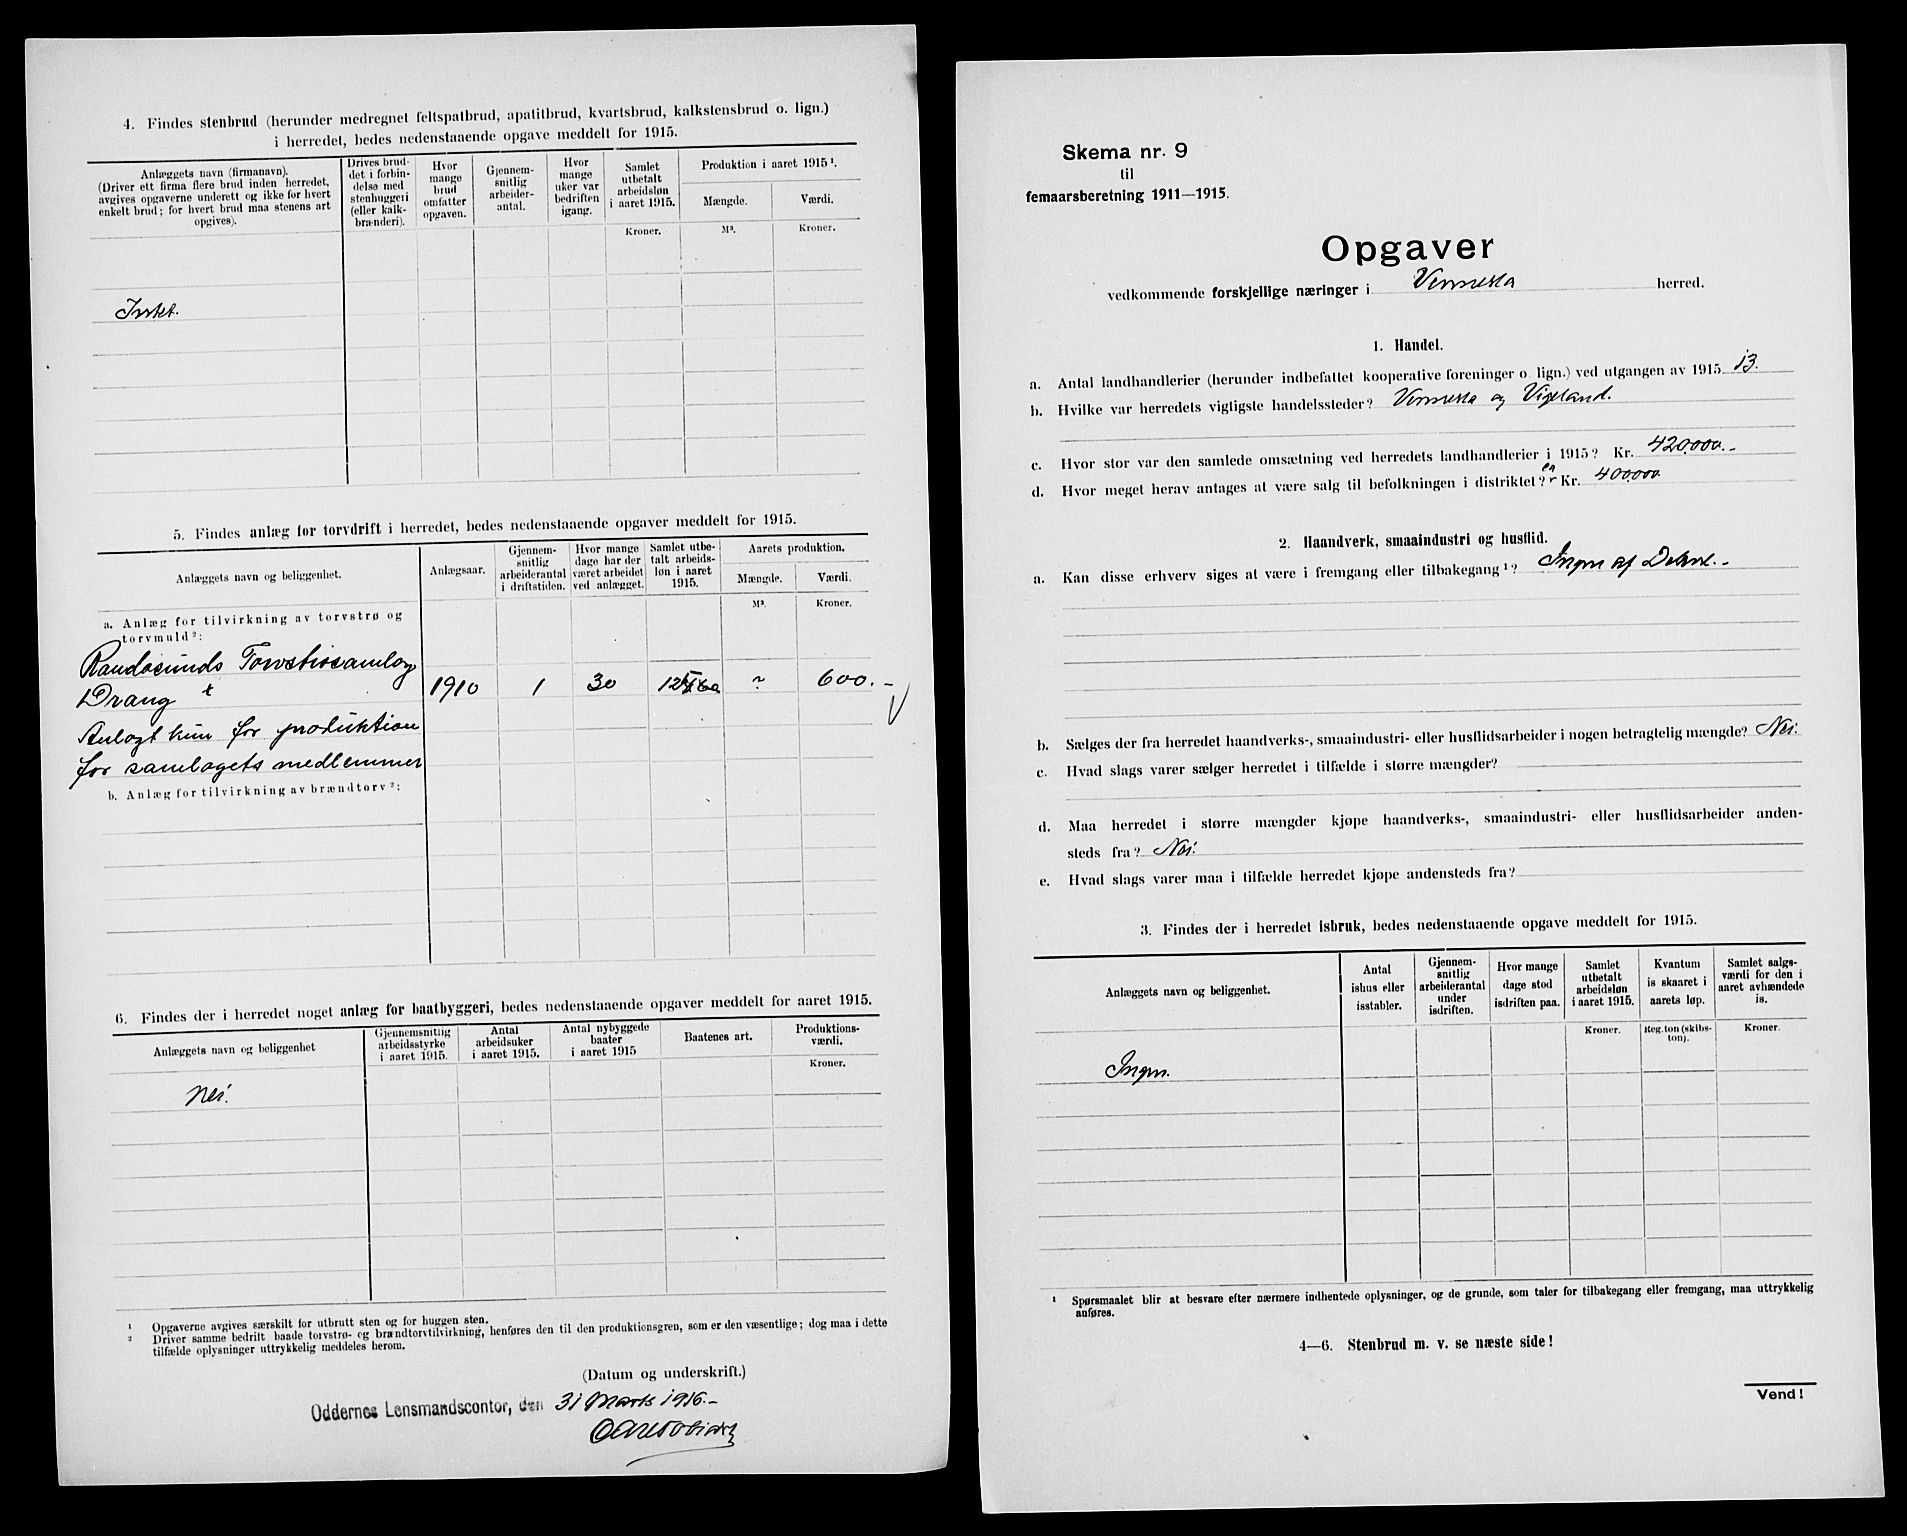 4. Findes stenbrud (herunder medregnet feltspatbrud, apatitbrud, kvartsbrud, kalkstensbrud o. lign.)
i herredet, bedes nedenstaaende opgave meddelt for 1915.
Anlæggets navn (firmanavn).
(Driver ett firma flere brud inden herredet,
avgives opgaverne underett og ikke for hvert
enkelt brud; for hvert brud maa stenens art
opgives).
Drives brud-
det i forbin-
delse med
stenhuggeri
(eller kalk-
brænderi).
Hvor
mange
brud
omfatter
opgaven.
Gjennem-
snitlig
arbeider-
antal.
Hvor
mange
uker var
bedriften
igang.
Samlet
utbetalt
arbeidsløn
i aaret 1915.
Produktion i aaret 1915¹.
Mængde.
Værdi.
Kroner.
M³.
Kroner.
Intet.
5. Findes anlæg for torvdrift i herredet, bedes nedenstaaende opgaver meddelt for 1915.
Anlæggets navn og beliggenhet.
Anlægsaar.
Gjennem-
snitlig
arbeiderantal
i driftstiden.
Hvor mange
dage har der
været arbeidet
ved anlægget.
Samlet utbe-
talt arbeids-
løn i aaret
1915.
Aarets produktion.
Mængde.
Værdi.
M³.
Kroner.
a. Anlæg for tilvirkning av torvstrø og
torvmuld²:
Randøsunds Torvstrøsamlag
Drang
1910 1 30 ? 600.-
Anlagt kun for produktion
for samlagets medlemmer
b. Anlæg for tilvirkning av brændtorv²:
6. Findes der i herredet noget anlæg for baatbyggeri, bedes nedenstaaende opgaver meddelt for aaret 1915.
Anlæggets navn og beliggenhet
Gjennemsnitlig
arbeidsstyrke
i aaret 1915.
Antal
arbeidsuker
i aaret 1915.
Antal nybyggede
baater
i aaret 1915
Baatenes art.
Produktions-
værdi.
Kroner.
Nei.
¹ Opgaverne avgives særskilt for utbrutt sten og for huggen sten.
² Driver samme bedrift baade torvstrø- og brændtorvtilvirkning, henføres den til den produktionsgren, som er den væsentlige; dog maa i dette
tilfælde oplysninger uttrykkelig meddeles herom.
(Datum og underskrift.)
Oddernes Lensmandscontor, den 31 Marts 1916.-
Skema nr. 9
til
femaarsberetning 1911—1915.
Opgaver
vedkommende forskjellige næringer i Vennesla herred.
1. Handel.
a. Antal landhandlerier (herunder indbefattet kooperative foreninger o. lign.) ved utgangen av 1915 13.
b. Hvilke var herredets vigtigste handelssteder? Vennesla og Vigeland.
c. Hvor stor var den samlede omsætning ved herredets landhandlerier i 1915? Kr. 420.000.-
d. Hvor meget herav antages at være salg til befolkningen i distriktet? ca Kr. 400.000.
2. Haandverk, smaaindustri og husflid.
a. Kan disse erhverv siges at være i fremgang eller tilbakegang¹? Ingen af Delene.-
b. Sælges der fra herredet haandverks-, smaaindustri- eller husflidsarbeider i nogen betragtelig mængde? Nei.
c. Hvad slags varer sælger herredet i tilfælde i større mængder?
d. Maa herredet i større mængder kjøpe haandverks-, smaaindustri- eller husflidsarbeider anden-
steds fra? Nei.
e. Hvad slags varer maa i tilfælde herredet kjøpe andensteds fra?
3. Findes der i herredet isbruk, bedes nedenstaaende opgave meddelt for 1915.
Anlæggets navn og beliggenhet.
Antal
ishus eller
isstabler.
Gjennem-
snitlig
arbeiderantal
under
isdriften.
Hvor mange
dage stod
isdriften paa.
Samlet
utbetalt
arbeidsløn
i aaret 1915.
Kvantum
is skaaret i
aarets løp.
Samlet salgs-
værdi for den i
aaret avhændede
is.
Kroner.
Reg.ton (skibs-
ton).
Kroner.
Ingen.
¹ Spørsmaalet blir at besvare efter nærmere indhentede oplysninger, og de grunde, som taler for tilbakegang eller fremgang, maa uttrykkelig
anføres.
4—6. Stenbrud m. v. se næste side!
Vend!